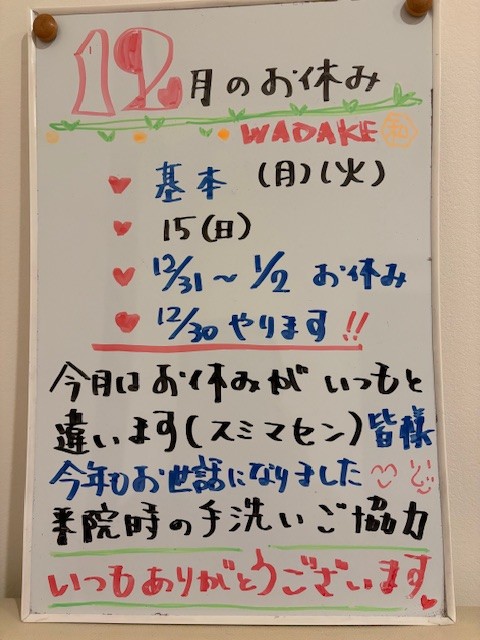 12月のお休み
WADAKE 和
基本 (月)(火)
15(日)
12/31〜1/2 お休み
12/30 やります!!
今月はお休みが いつもと
違います(スミマセン) 皆様
今年もお世話になりました
来院時の手洗いご協力
いつもありがとうございます